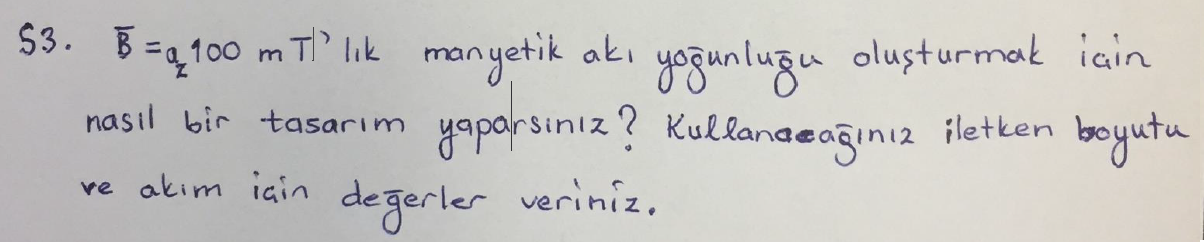 S3. B̅ = a_z 100 mT' lık manyetik akı yoğunluğu oluşturmak için
nasıl bir tasarım yaparsınız? Kullanacağınız iletken boyutu
ve akım için değerler veriniz.